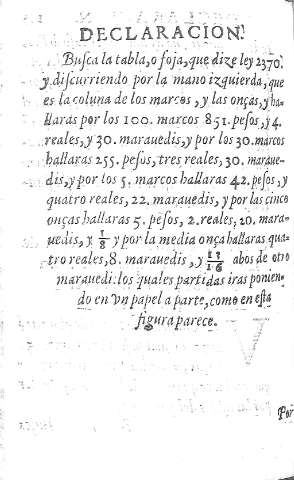 DECLARACION.
Busca la tabla, o foja, que dize ley 2370.
y discurriendo por la mano izquierda, que
es la coluna de los marcos, y las onças, y ha-
llaras por los 100. marcos 851. pesos, y 4.
reales, y 30. marauedis, y por los 30. marcos
hallaras 255. pesos, tres reales, 30. maraue-
dis, y por los 5. marcos hallaras 42. pesos, y
quatro reales, 22. marauedis, y por las cinco
onças hallaras 5. pesos, 2. reales, 20. mara-
uedis, y y por la media onça hallaras qua-
tro reales, 8. marauedis, y abos de otro
marauedi: los quales partidas iras ponien-
do en vn papel a parte, como en esta
figura parece.
Por